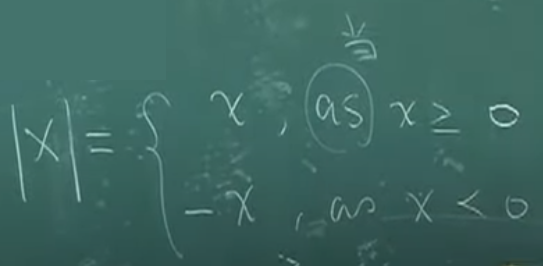 |x| = { x, as x ≥ 0
-x, as x < 0